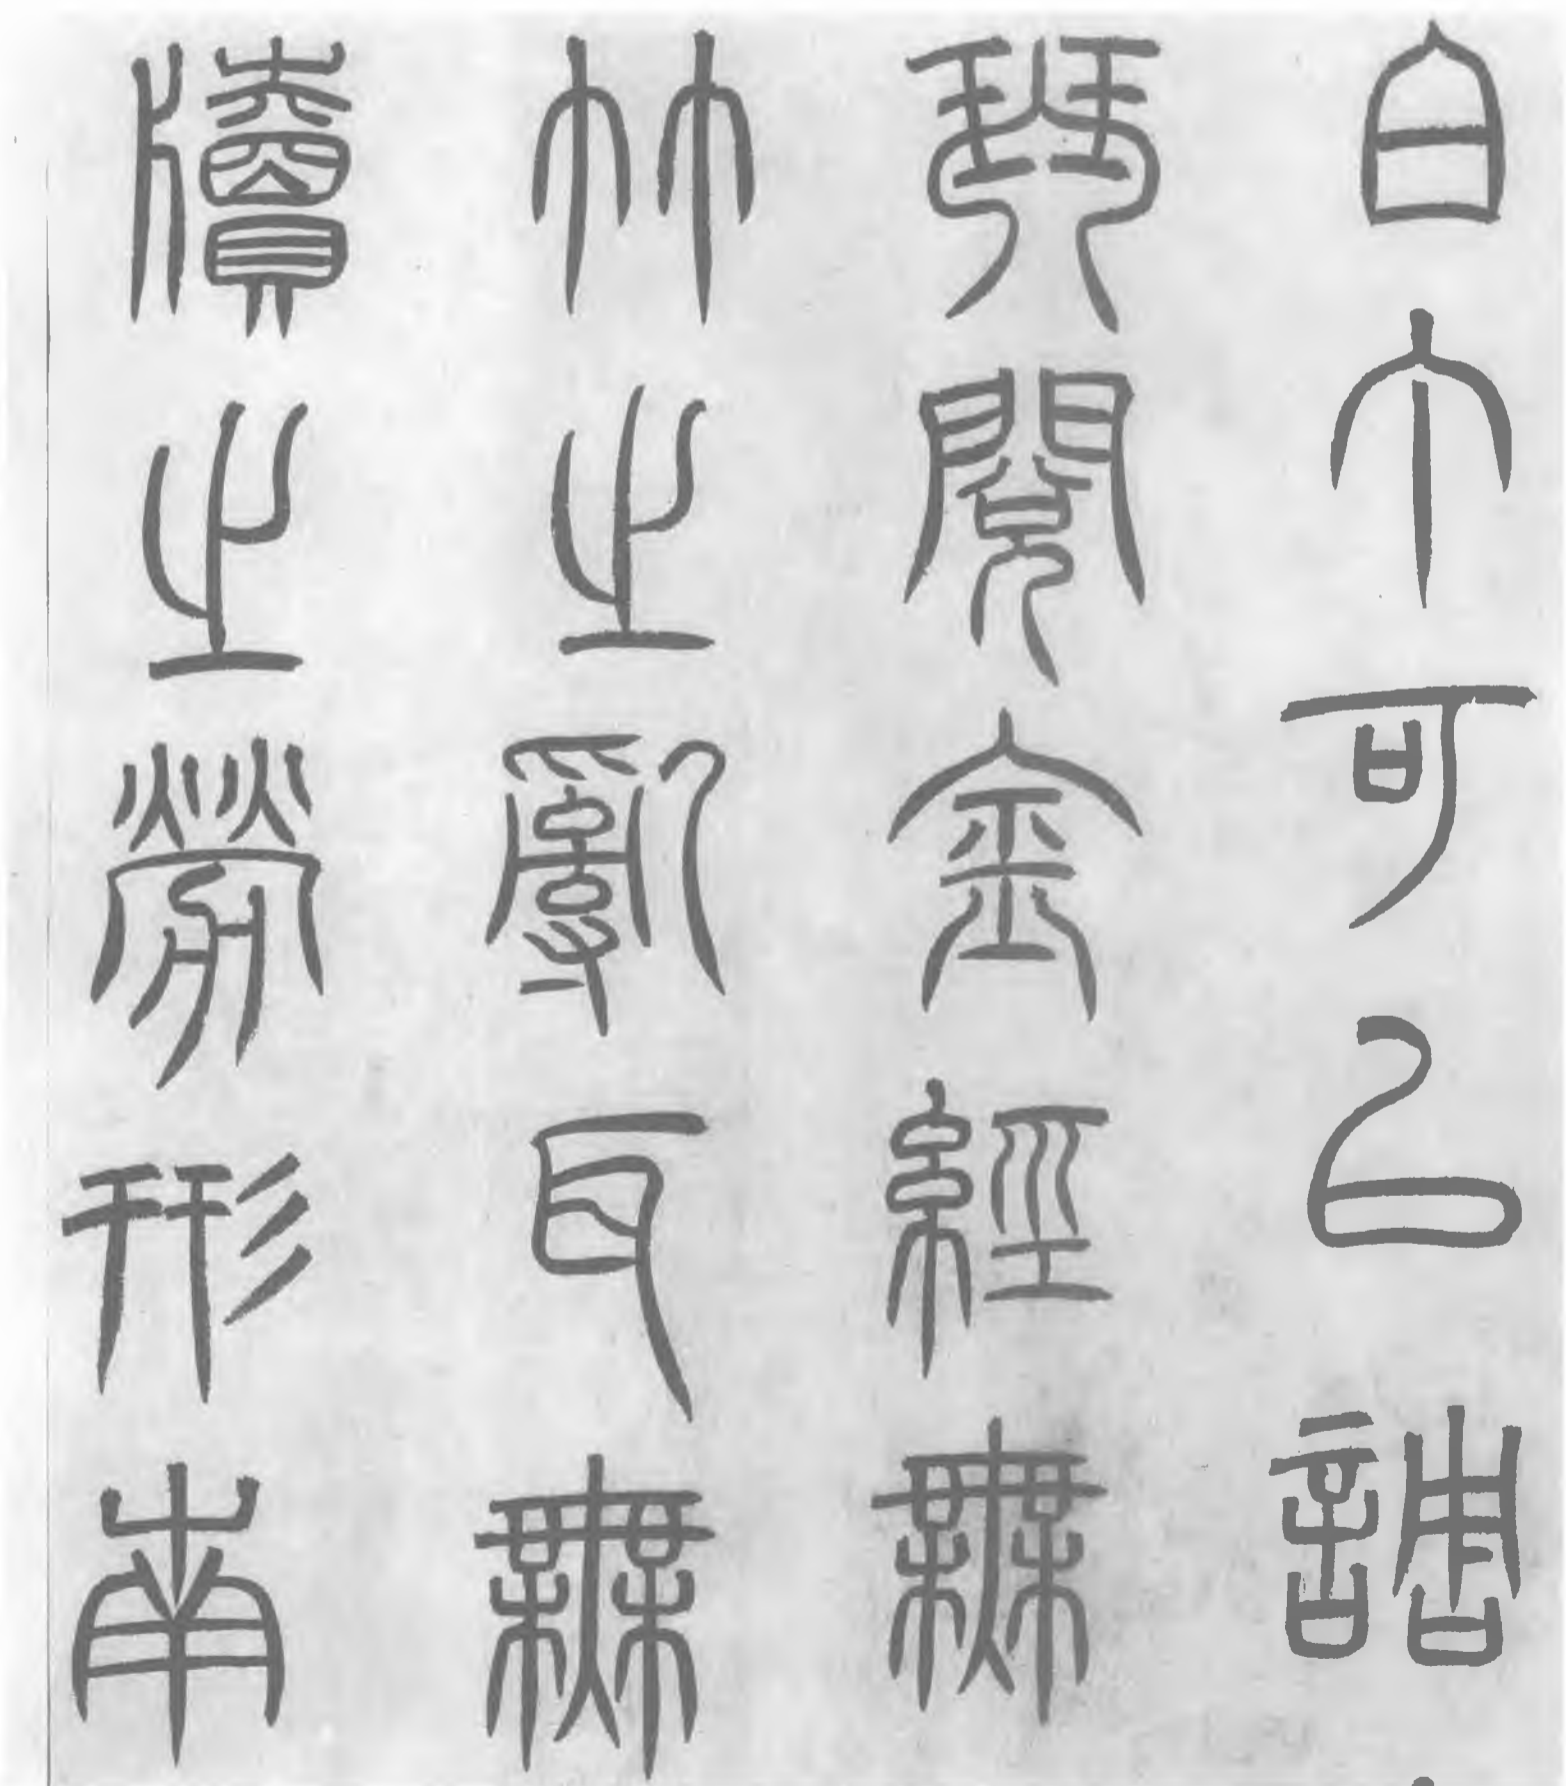 白丁可以調
琴閱金經無
竹之亂耳無
牘之勞形南